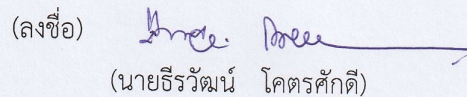 (ลงชื่อ)
(นายธีรวัฒน์ โคตรศักดิ์)